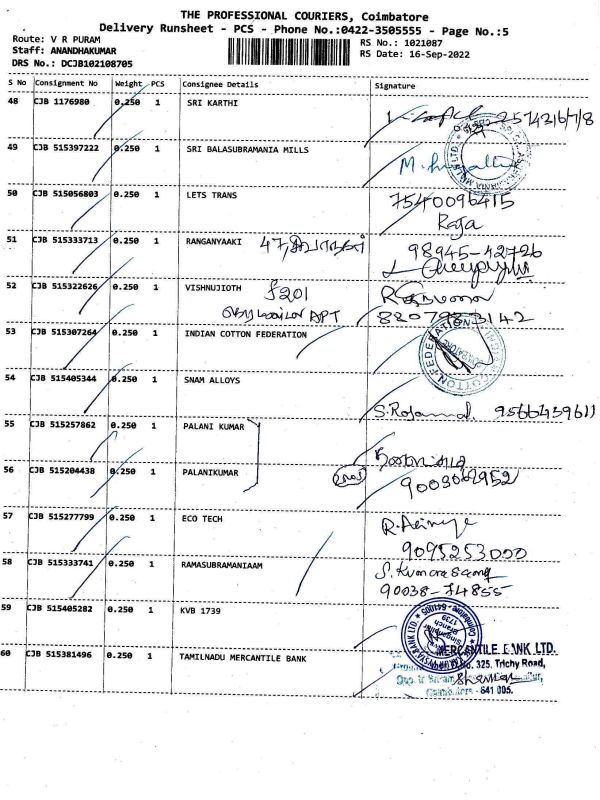 THE PROFESSIONAL COURIERS, Coimbatore
Delivery Runsheet - PCS - Phone No.:0422-3505555 - Page No.:5
Route: V R PURAM
RS No.: 1021087
Staff: ANANDHAKUMAR
RS Date: 16-Sep-2022
DRS No.: DCJB102108705
S No Consignment No Weight PCS Consignee Details Signature
48 CJB 1176980 0.250 1 SRI KARTHI
49 CJB 515397222 0.250 1 SRI BALASUBRAMANIA MILLS
50 CJB 515056803 0.250 1 LETS TRANS 7540096415
Raja
51 CJB 515333713 0.250 1 RANGANYAAKI 47, 98945-42726
52 CJB 515322626 0.250 1 VISHNUJIOTH F201
APT
53 CJB 515307264 0.250 1 INDIAN COTTON FEDERATION
COTTON FEDERATION
54 CJB 515405344 0.250 1 SNAM ALLOYS
9566459611
55 CJB 515257862 0.250 1 PALANI KUMAR
56 CJB 515204438 0.250 1 PALANIKUMAR
57 CJB 515277799 0.250 1 ECO TECH
9095253000
58 CJB 515333741 0.250 1 RAMASUBRAMANIAAM
90038-74855
59 CJB 515405282 0.250 1 KVB 1739
60 CJB 515381496 0.250 1 TAMILNADU MERCANTILE BANK
MERCANTILE BANK LTD.
No. 325, Trichy Road,
Coimbatore - 641 005.